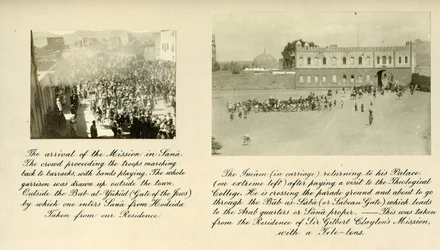 The arrival of the Mission in Sana.
The crowd proceeding the troops marching
back to barracks, with bands playing. The whole
garrison was drawn up outside the town.
Outside the Bab-al-Yahud (Gate of the Jews)
by which one enters Sana from Hodeida
Taken from our Residence.
The Imam (in carriage) returning to his Palace
(on extreme left) after paying a visit to the Theological
College. He is crossing the parade ground and about to go
through the Bab-as-Saba (or Saban Gate) which leads
to the Arab quarters or Sana proper. — This was taken
from the Residence of Sir Gilbert Clayton's Mission,
with a Tele-lens.